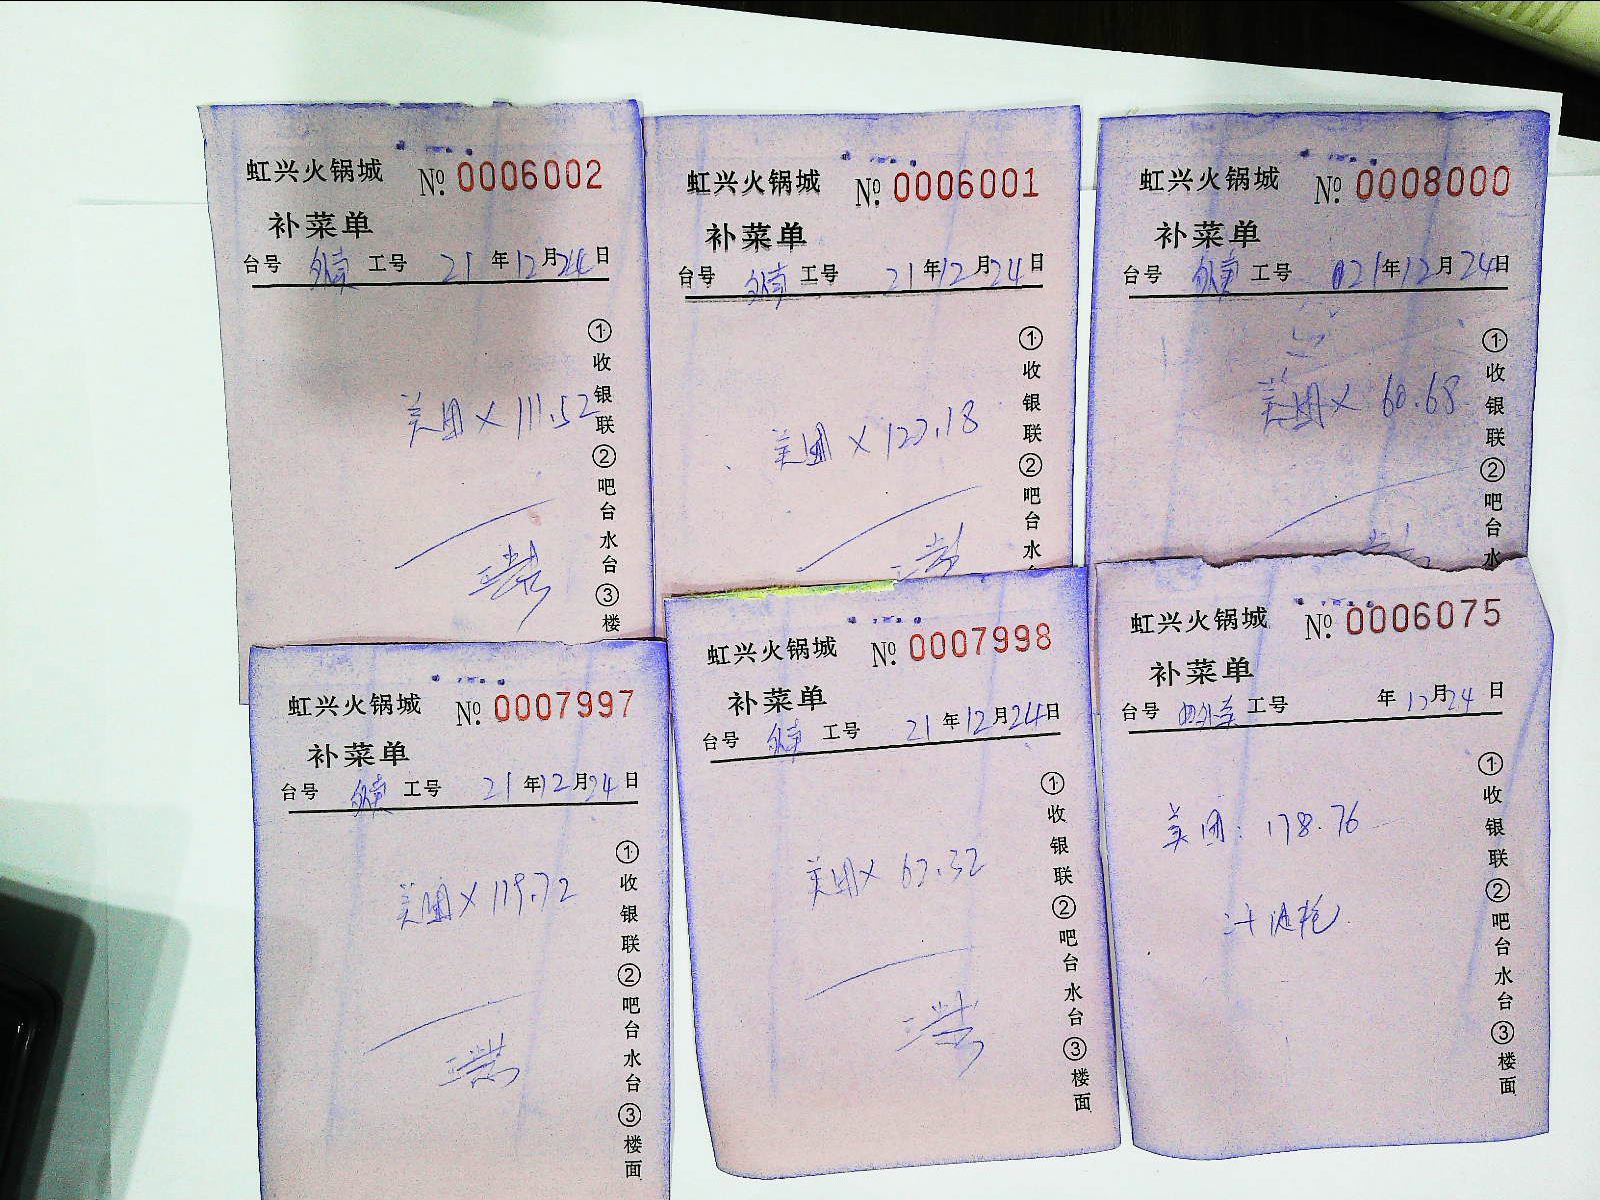 虹兴火锅城 № 0006002
补菜单
台号 外卖 工号 21 年 12 月 24 日
美团 X 111.52
①收银联②吧台水台③楼
虹兴火锅城 № 0006001
补菜单
台号 外卖 工号 21 年 12 月 24 日
美团 X 122.18
①收银联②吧台水
虹兴火锅城 № 0008000
补菜单
台号 外卖 工号 021 年 12 月 24 日
美团 X 60.68
①收银联②吧台水
虹兴火锅城 № 0007997
补菜单
台号 外卖 工号 21 年 12 月 24 日
美团 X 119.72
①收银联②吧台水台③楼面
虹兴火锅城 № 0007998
补菜单
台号 外卖 工号 21 年 12 月 24 日
美团 X 62.32
①收银联②吧台水台③楼面
虹兴火锅城 № 0006075
补菜单
台号 外卖 工号 年 12 月 24 日
美团: 178.76
①收银联②吧台水台③楼面